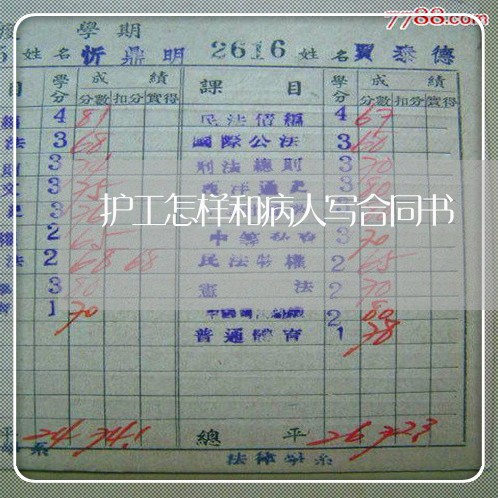 7788.com
學期
姓名 忻鼎明 2616 姓名 賈泰德
目 學分 成績 課目 學分 成績
分數 扣分 實得 分數 扣分 實得
4 81 民法債編 4 67
法 3 68 國際公法 3 60
3 刑法總則 3 70
3 75 西洋通史 3 80
护工怎样和病人写合同书
2 65 3 70
法 2 68 68 民法物權 2 65
3 80 憲法 2 70
1 70 2 80
普通體育 1 78
平 24 74.1 總平 26 72.3
系 法律學系